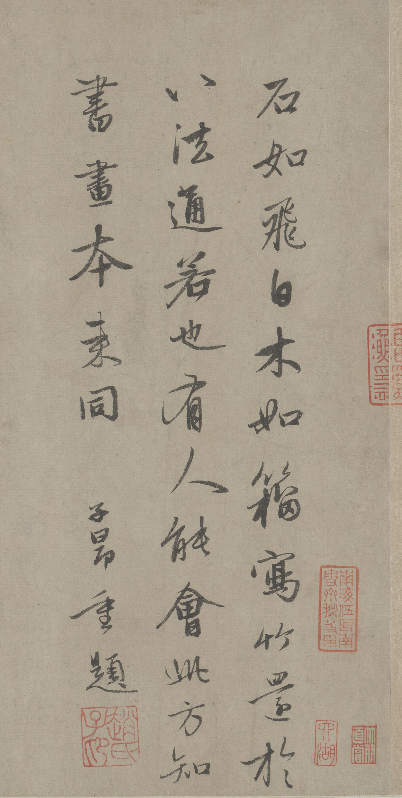 石如飛白木如籀寫竹還於
八法通若也有人能會此方知
書畫本來同 子昂重題
趙氏子昂